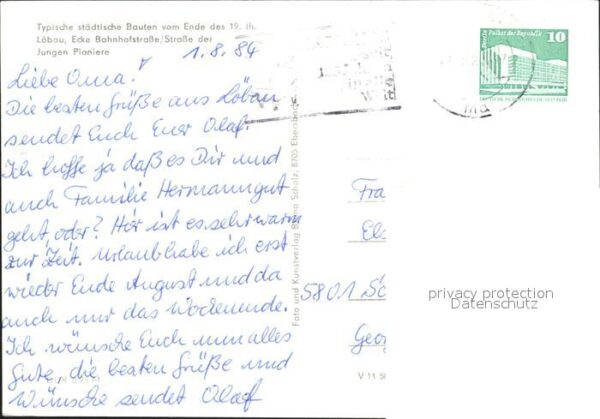 Typische städtische Bauten vom Ende des 19. Jh.
Löbau, Ecke Bahnhofstraße/Straße der
Jungen Pioniere
1.8.84
Liebe Oma!
Die besten Grüße aus Löbau
sendet Euch Euer Olaf.
Ich hoffe ja daß es Dir und
auch Familie Hermann gut
geht, oder? Hir ist es sehr warm
zur Zeit. Urlaub habe ich erst
wieder Ende August und da
auch nur das Wochenende.
Ich wünsche Euch nun alles
Gute, die besten Grüße und
Wünsche sendet Olaf
Foto und Kunstverlag Scholz, 8705 Ebersbach
Berlin, Palast der Republik
10
Fra
5801
Geor
privacy protection
Datenschutz
V 11